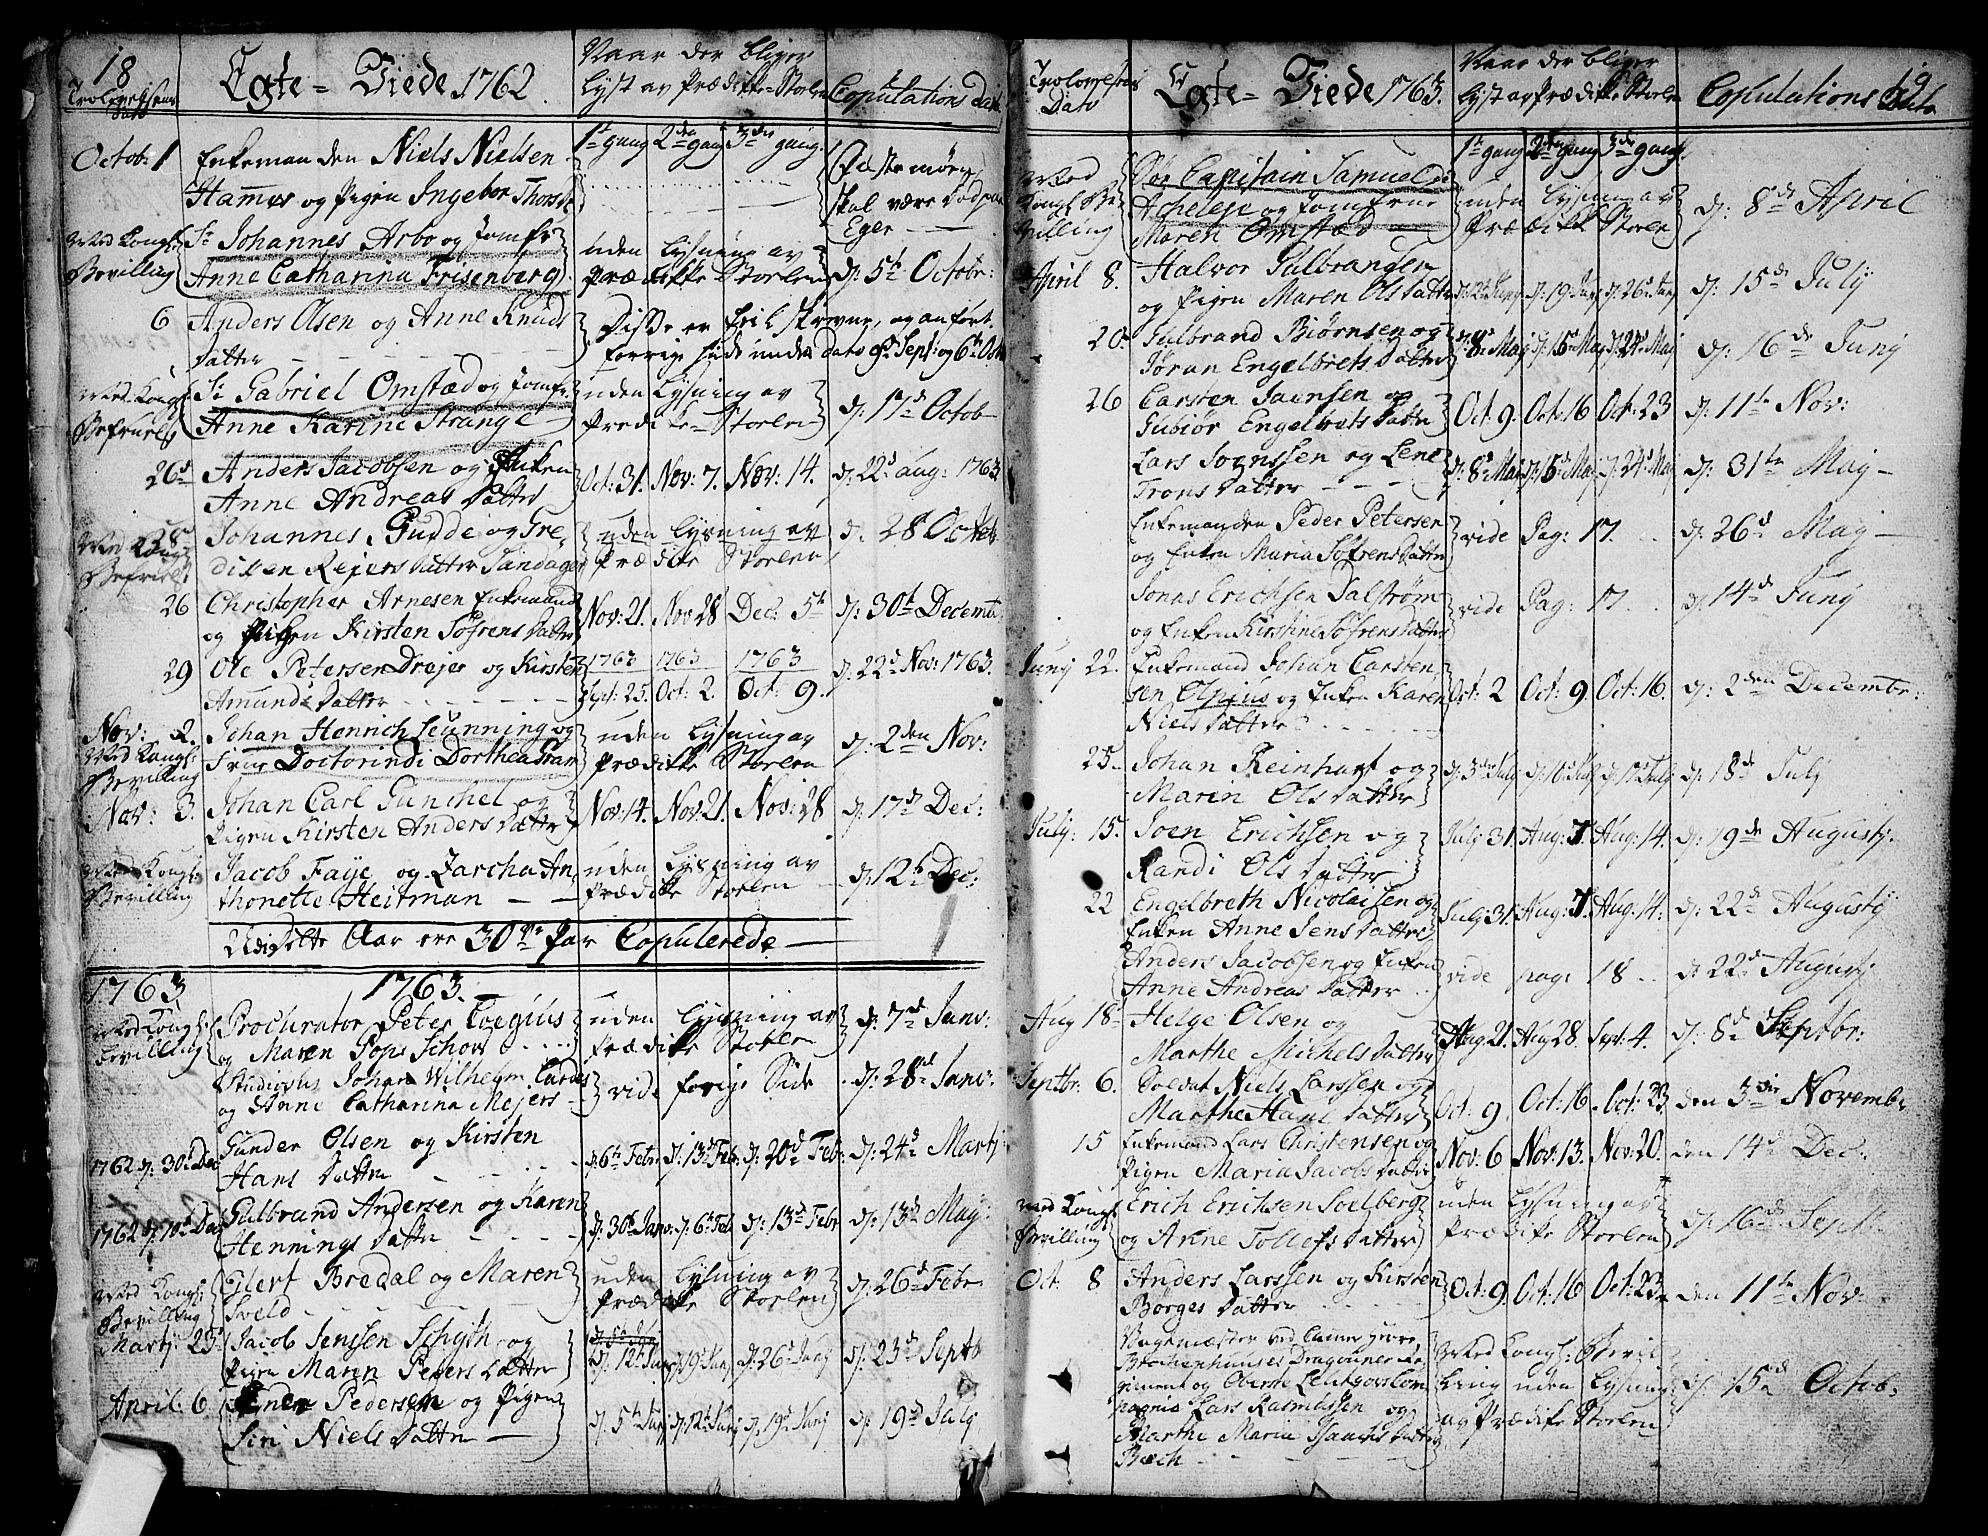 18
Trolovelsens Dato
Egte = Viede 1762
Naar der bliger
Lyst av Prædikke = Stolen
Copulations Dato
1te gang 2den gang 3die gang
Octob: 1
Enkeman den Niels Nielsen
Hammer og Pigen Ingebor Thorsd
Fæste
skal være
Eger
Med Kongl:
Bevilling
Sr. Johannes Arbo og Jomfr
Anne Catharina Frisenberg
uden Lysning av
Prædikke Stolen
d: 5te Octobr:
6
Anders Olsen og Anne Knuds
Datter
Disse er feil skrevne, og anført
forrige side under dato 9de Sept: og 6te Oct
Med Kongl
Sr. Gabriel Omstæd og Jomfr.
Anne Karine Strange
uden Lysning av
Predike = Stolen
d: 17d Octob
26d
Anders Jacobsen og Enken
Anne Andreas Datter
Oct: 31. Nov: 7. Nov: 14.
d: 22d Aug: 1763
28
Med Kongl
Johannes Gudde og Gre
dixen Rejers Datter Sandager
uden Lysning av
Prædike Stolen
d. 28 Octob
26
Christopher Arnesen Enkemand
og Pigen Kirsten Söfrens Datter
Nov: 21. Nov 28 Dec: 5te
d: 30te Decemb
29
Ole Petersen Drejer og Kirsten
Amunds Datter
1763 1763 1763
Sept: 25. Oct: 2. Oct: 9.
d: 22d Nov: 1763.
Nov: 2.
Med Kongl:
Bevilling
Johan Henrich Leunning og
Frue Doctorindi Dorthea Gram
uden Lysning av
Prædikke Stolen
d: 2den Nov:
Nov: 3.
Johan Carl Gunchel og
Pigen Kirsten Anders Datter
Nov: 14. Nov: 21. Nov: 28
d: 17de Dec:
Med Kongl:
Bevilling
Jacob Faye og Zarcha An
thonette Heitman
uden Lysning av
Prædike Stolen
d: 12te Dec:
Udi Dette Aar ere 30ve Par Copulerede
1763
1763.
Med Kongl:
Bevilling
Procurator Peter Coegius
og Maren Pops Schow
uden Lysning av
Prædike Stolen
d: 7de Janv:
Studiosus Johan Wilhelm Cardes
og Anne Catharina Mejers
vide forige Side
d: 28de Janv:
1762 d: 30te Dec
Gunder Olsen og Kirsten
Hans Datter
d: 6te Febr: d: 13d Feb: d: 20d Feb:
d: 24de Martj
1762 d: 10de Dec
Gulbrand Andersen og Karen
Hennings Datter
d: 30te Janv: d: 6te Feb d: 13de Febr
d: 13de Maj
Med Kongl:
Bevilling
Eilert Bredal og Maren
Sveld
uden Lysning av
Prædike Stolen
d: 26d Febr
Martj: 25d
Jacob Jensen Schyth og
Pigen Maren Peders Datter
d: 12te Junj d: 19d Junj d: 26d Junj
d: 23de Septb
April: 6
Peder Pedersen og Pigen
Siri Niels Datter
d. 5te Junj d: 12te Junj d: 19d Junj
d: 19de Julj
Trolovelsens
Dato
Egte = Viede 1763.
Naar der bliger
Lyst av Prædikke Stolen
Copulations Dato
19
1te gang 2den gang 3die gang
Med
Kongl. Be
villing
Hr. Capitain Samuel de
Acheleje og Jomfrue
Maren Omstæd
uden Lysning av
Prædikk Stolen
d: 8de April
April 8.
Halvor Gulbrandsen
og Pigen Maren Ols Datter
d: 12te Junj d: 19. Junj d: 26d Junj
d: 15de Julj
20.
Gulbrand Biörnsen og
Jöran Engelbrets Datter
d: 8de Maj d: 15de Maj d: 24de Maj
d: 16de Junj
26
Carsten Jaensen og
Gubiör Engelbrets Datter
Oct: 9. Oct: 16 Oct: 23
d: 11te Nov:
Lars Svenssen og Lene
Trons Datter
d: 8de Maj d: 15d Maj d: 24d Maj
d: 31te Maj
Enkemanden Peder Petersen
og Enken Maria Söfrens Datter
vide Pag: 17.
d: 26d Maj
Jonas Erichsen Dalström
og Enken Kirstine Söfrens Datter
vide Pag: 17
d: 14de Junj
Junj 22.
Enkemand Johan Carsten
sen Olpius og Enken Karen
Niels Datter
Oct: 2 Oct: 9 Oct: 16.
d: 2den Decembr:
25.
Johan Reinhart og
Maren Ols Datter
d: 3die Julj d: 10de Julj d: 17de Julj
d: 18de Julj
Julj: 15.
Soen Erichsen og
Randi Ols Datter
Julj 31. Aug: 7. Aug: 14.
d: 19de Augustj.
22
Engelbreth Nicolaisen og
Enken Anne Jens Datter
Julj 31. Aug: 7. Aug. 14:
d: 22de Augustj
Anders Jacobsen og Enken
Anne Andreas Datter
vide pag: 18
d: 22de Augustj.
Aug 18
Helge Olsen og
Marthe Michels Datter
Aug 21. Aug 28 Sept: 4.
d: 8de Septbr:
Septbr: 6.
Soldat Niels Larssen og
Marthe Hans Datter
Oct: 9. Oct: 16 Oct: 23
den 3die Novemb
15
Enkemand Lars Christensen og
Pigen Maria Jacobs Datter
Nov: 6 Nov: 13. Nov: 20.
den 14de Dec:
Med Kongl
Bevilling
Erich Erichsen Soelberg
og Anne Tollefs Datter
uden Lysning av
Prædike Stolen
d: 16de Septb
Oct: 8
Anders Larssen og Kirsten
Börges Datter
Oct: 9. Oct: 16 Oct: 23
den 11te Nov:
Vagemester ved Cammer Herre
Brochenhuuses Dragouner Re
giment og Oberste Leutgovs Com
pagnie Lars Rasmussen og
Marthe Maria Isaachs Datter
Bech
Med Kongl: Bevil
ling uden Lysning
av Prædike Stolen
d: 15de Octob: